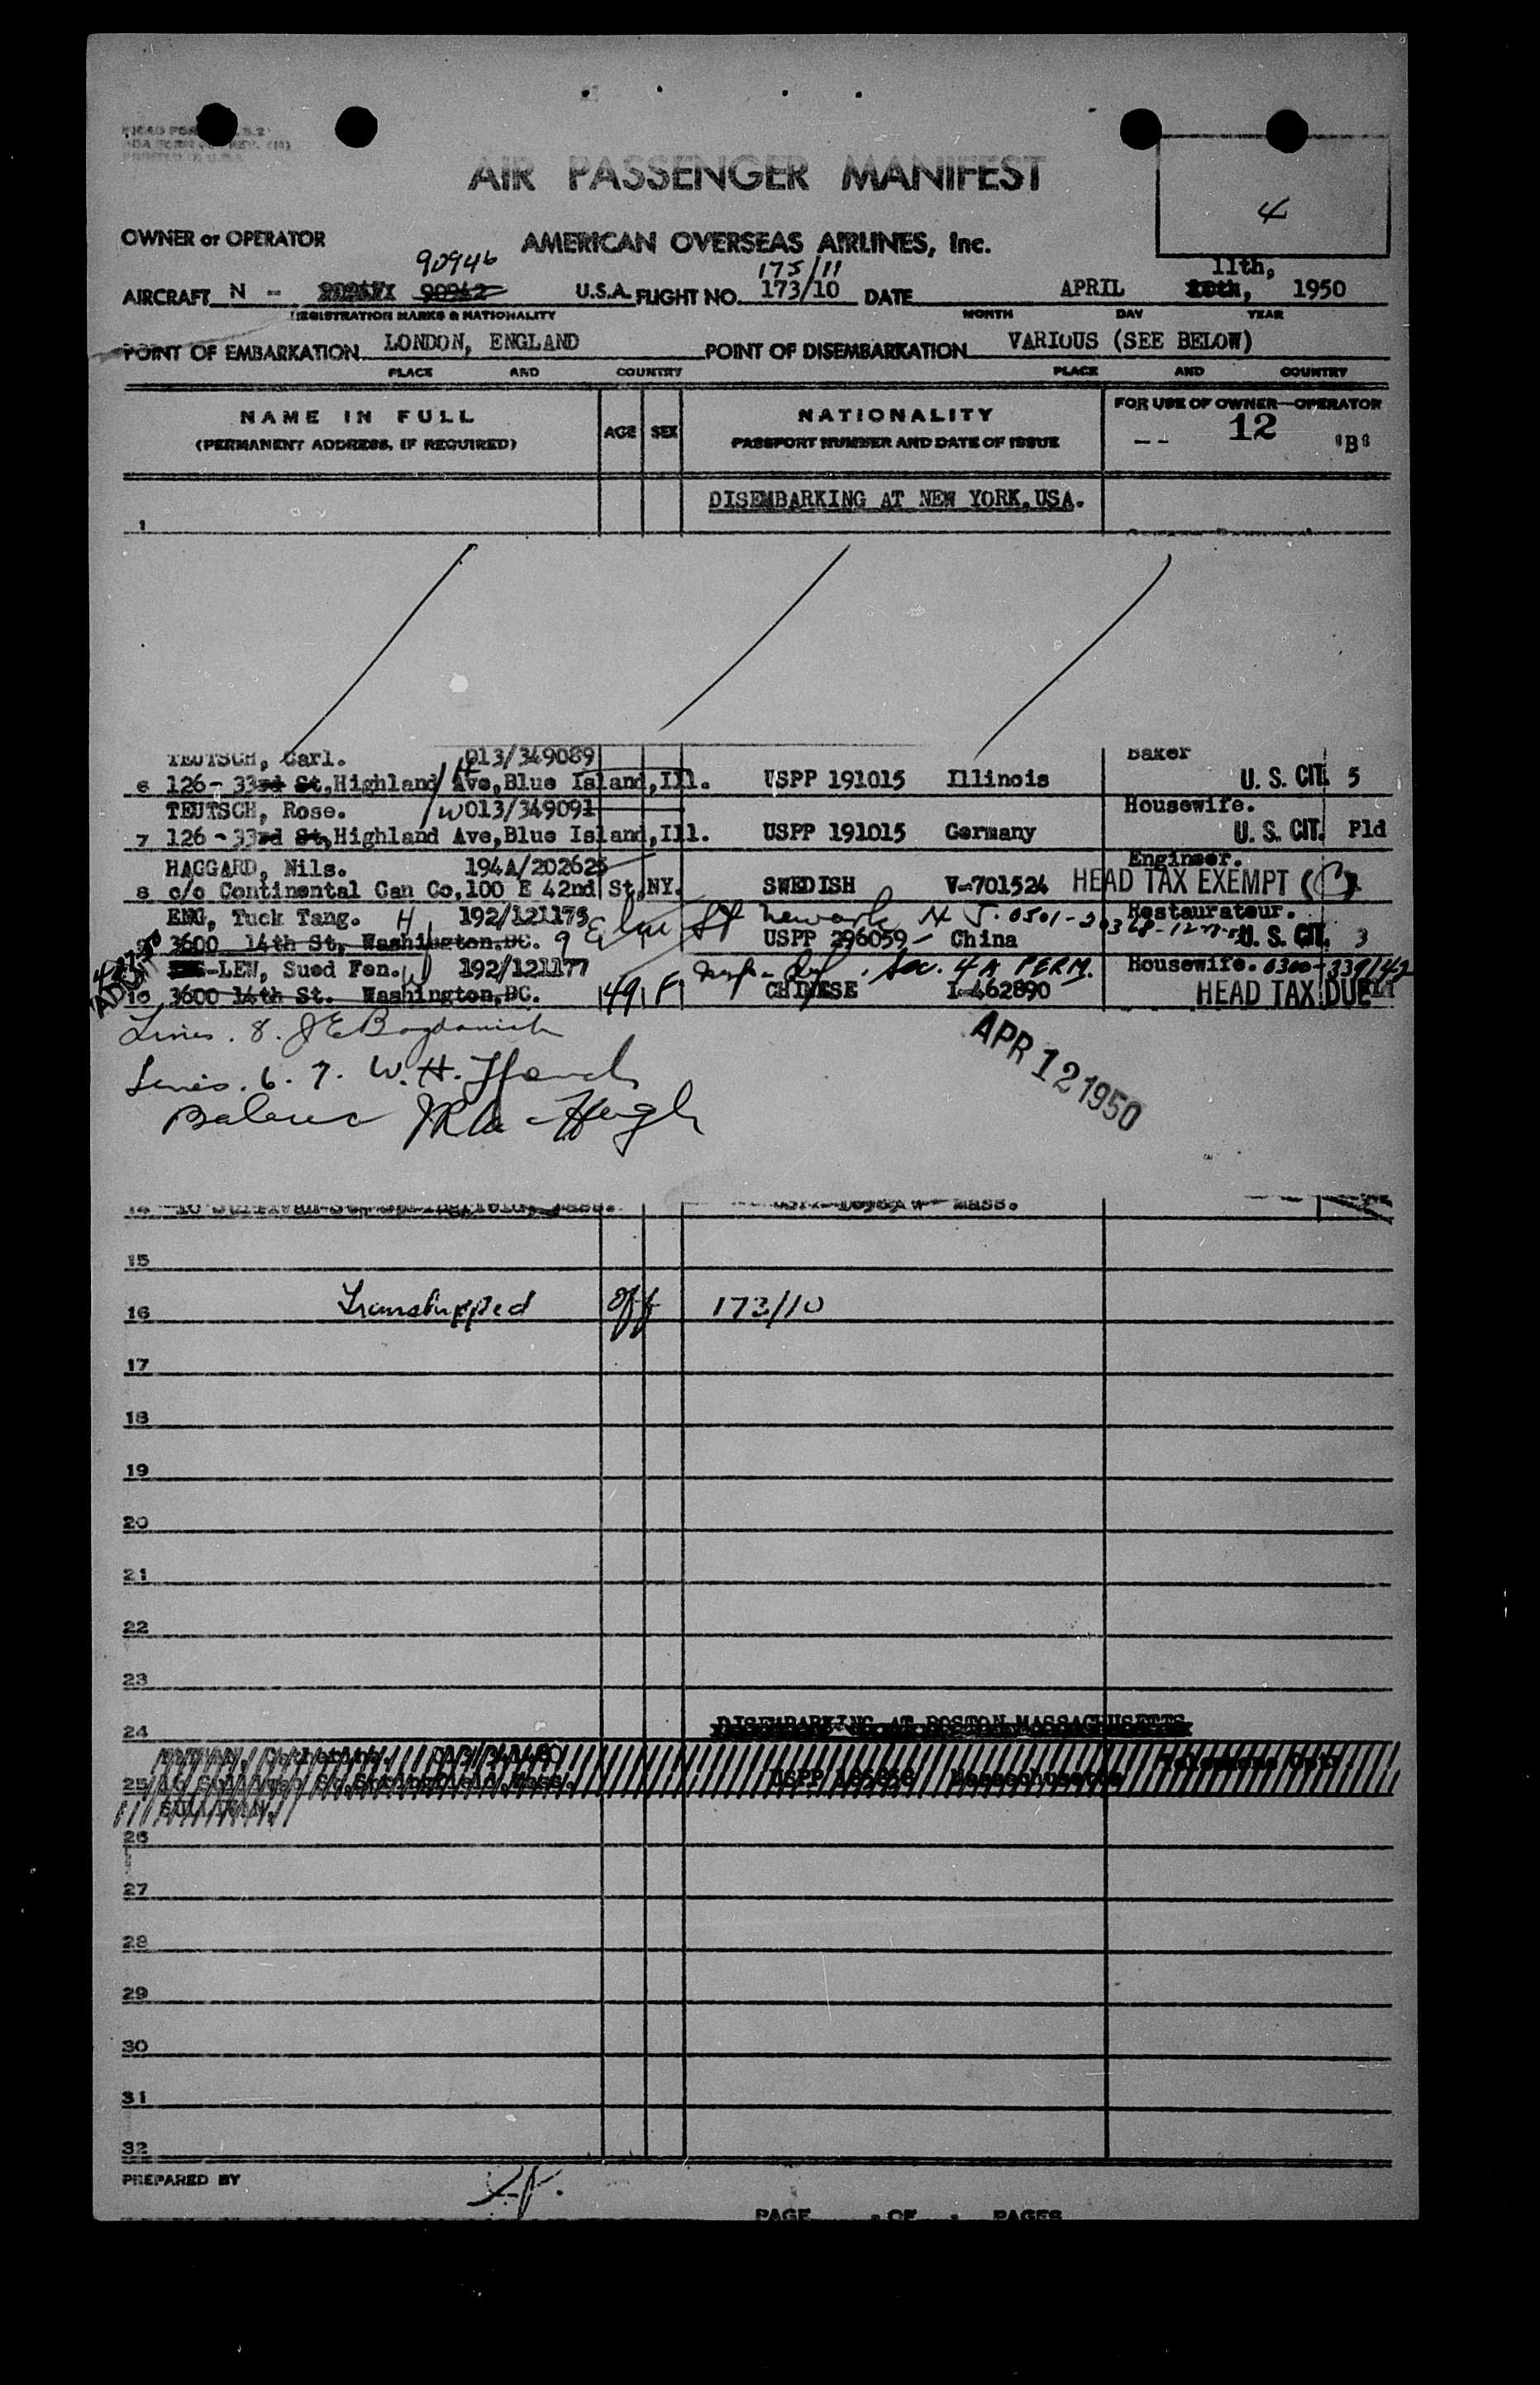 AIR PASSENGER MANIFEST
4
OWNER or OPERATOR AMERICAN OVERSEAS AIRLINES, Inc.
90946 175/11 11th,
AIRCRAFT N - 90942 U.S.A. FLIGHT NO. 173/10 DATE APRIL 10th, 1950
REGISTRATION MARKS & NATIONALITY MONTH DAY YEAR
POINT OF EMBARKATION LONDON, ENGLAND POINT OF DISEMBARKATION VARIOUS (SEE BELOW)
PLACE AND COUNTRY PLACE AND COUNTRY
NAME IN FULL AGE SEX NATIONALITY FOR USE OF OWNER—OPERATOR
(PERMANENT ADDRESS, IF REQUIRED) PASSPORT NUMBER AND DATE OF ISSUE -- 12 "B"
DISEMBARKING AT NEW YORK, USA.
1
TEUTSCH, Carl. 013/349089 Baker
6 126 - 33rd St, Highland Ave, Blue Island, Ill. USPP 191015 Illinois U. S. CIT. 5
TEUTSCH, Rose. W 013/349091 Housewife.
7 126 - 33rd St, Highland Ave, Blue Island, Ill. USPP 191015 Germany U. S. CIT. Pld
HAGGARD, Nils. 194A/202625 Engineer.
8 c/o Continental Can Co, 100 E 42nd St, NY. SWEDISH V-701524 HEAD TAX EXEMPT
ENG, Tuck Tang. H 192/121175 Newark N J. Restaurateur.
3600 14th St, Washington. DC. 9 Elm St USPP 296059 - China U. S. CIT. 3
-LEW, Sued Fen. W 192/121177 Sec. 4 A PERM. Housewife.
10 3600 14th St. Washington, DC. 49 F CHINESE I-462890 HEAD TAX DUE
Lines. 8. J E Bogdanich
Lines. 6. 7. W. H.
Balance
APR 12 1950
14 Mass.
15
16 Transhipped off 173/10
17
18
19
20
21
22
23
24 DISEMBARKING AT BOSTON MASSACHUSETTS
25 USPP Massachusetts
26
27
28
29
30
31
32
PREPARED BY
PAGE OF PAGES